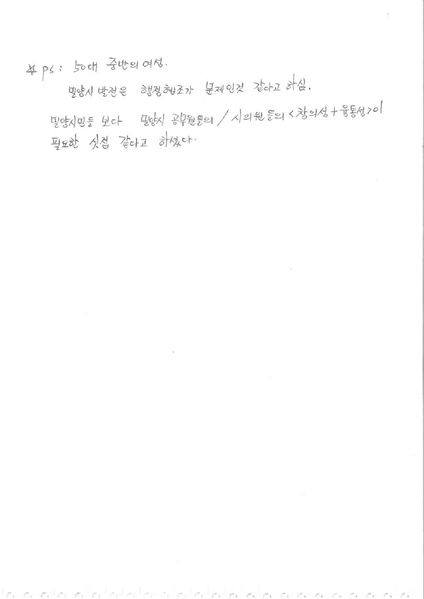 * ps : 50대 중반의 여성.
밀양시 발전은 행정협조가 문제인것 같다고 하심.
밀양시민들 보다 밀양시 공무원들의 / 시의원들의 <창의성 + 융통성>이
필요한 싯점 같다고 하셨다.